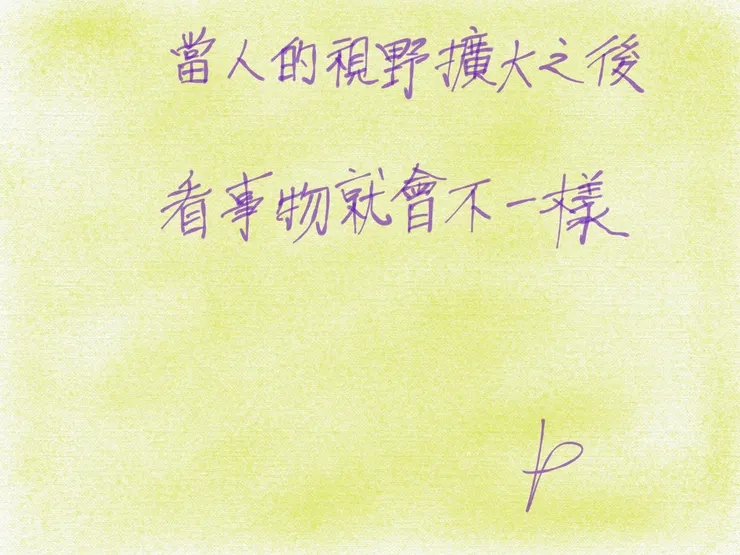 當人的視野擴大之後
看事物就會不一樣